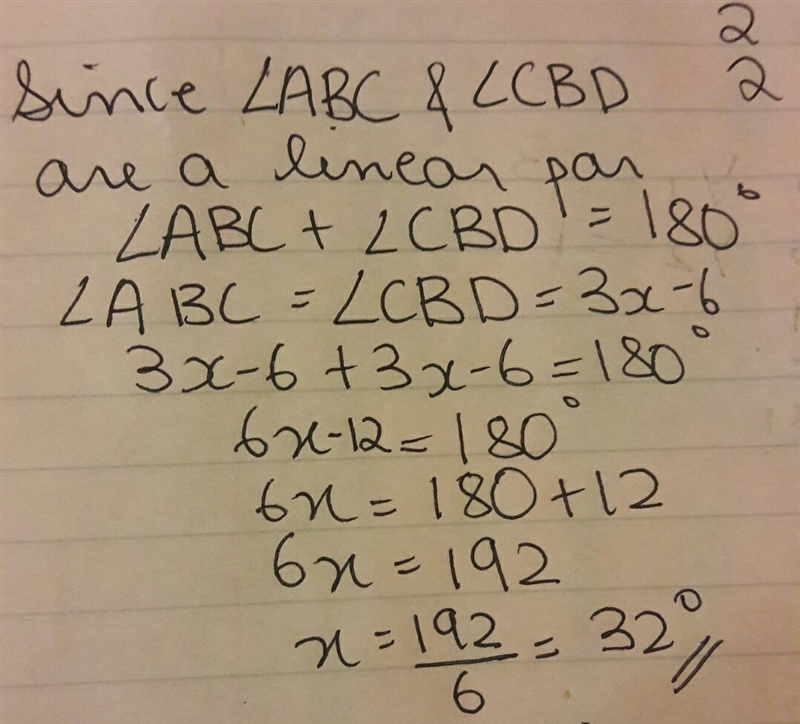 2
Since ∠ABC & ∠CBD 2
are a linear par
∠ABC + ∠CBD = 180°
∠ABC = ∠CBD = 3x-6
3x-6 + 3x-6 = 180°
6x-12 = 180°
6x = 180 + 12
6x = 192
x = 192/6 = 32°//